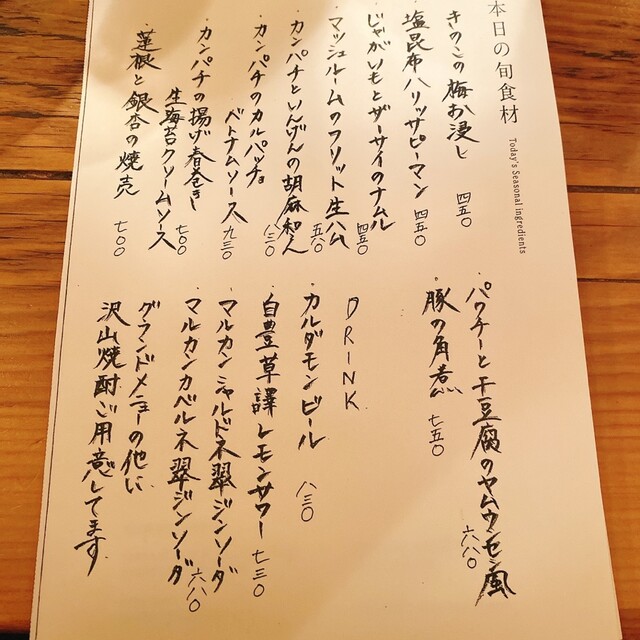 本日の旬食材
Today's Seasonal ingredients
・きのこの梅お浸し 四五〇
・塩昆布ハリッサピーマン 四五〇
・じゃがいもとザーサイのナムル 四五〇
・マッシュルームのフリット生ハム 五八〇
・カンパチといんげんの胡麻和え 八三〇
・カンパチのカルパッチョ
ベトナムソース 九三〇
・カンパチの揚げ春巻き
生海苔クリームソース 七〇〇
・蓮根と銀杏の焼売 七〇〇
・パクチーと干豆腐のヤムウンセン風 六八〇
・豚の角煮 七五〇
DRINK
・カルダモンビール 八三〇
・白豊草譯レモンサワー 七三〇
・マルカンシャルドネ翠ジンソーダ
・マルカンカベルネ翠ジンソーダ 六八〇
グランドメニューの他に
沢山焼酎ご用意してます